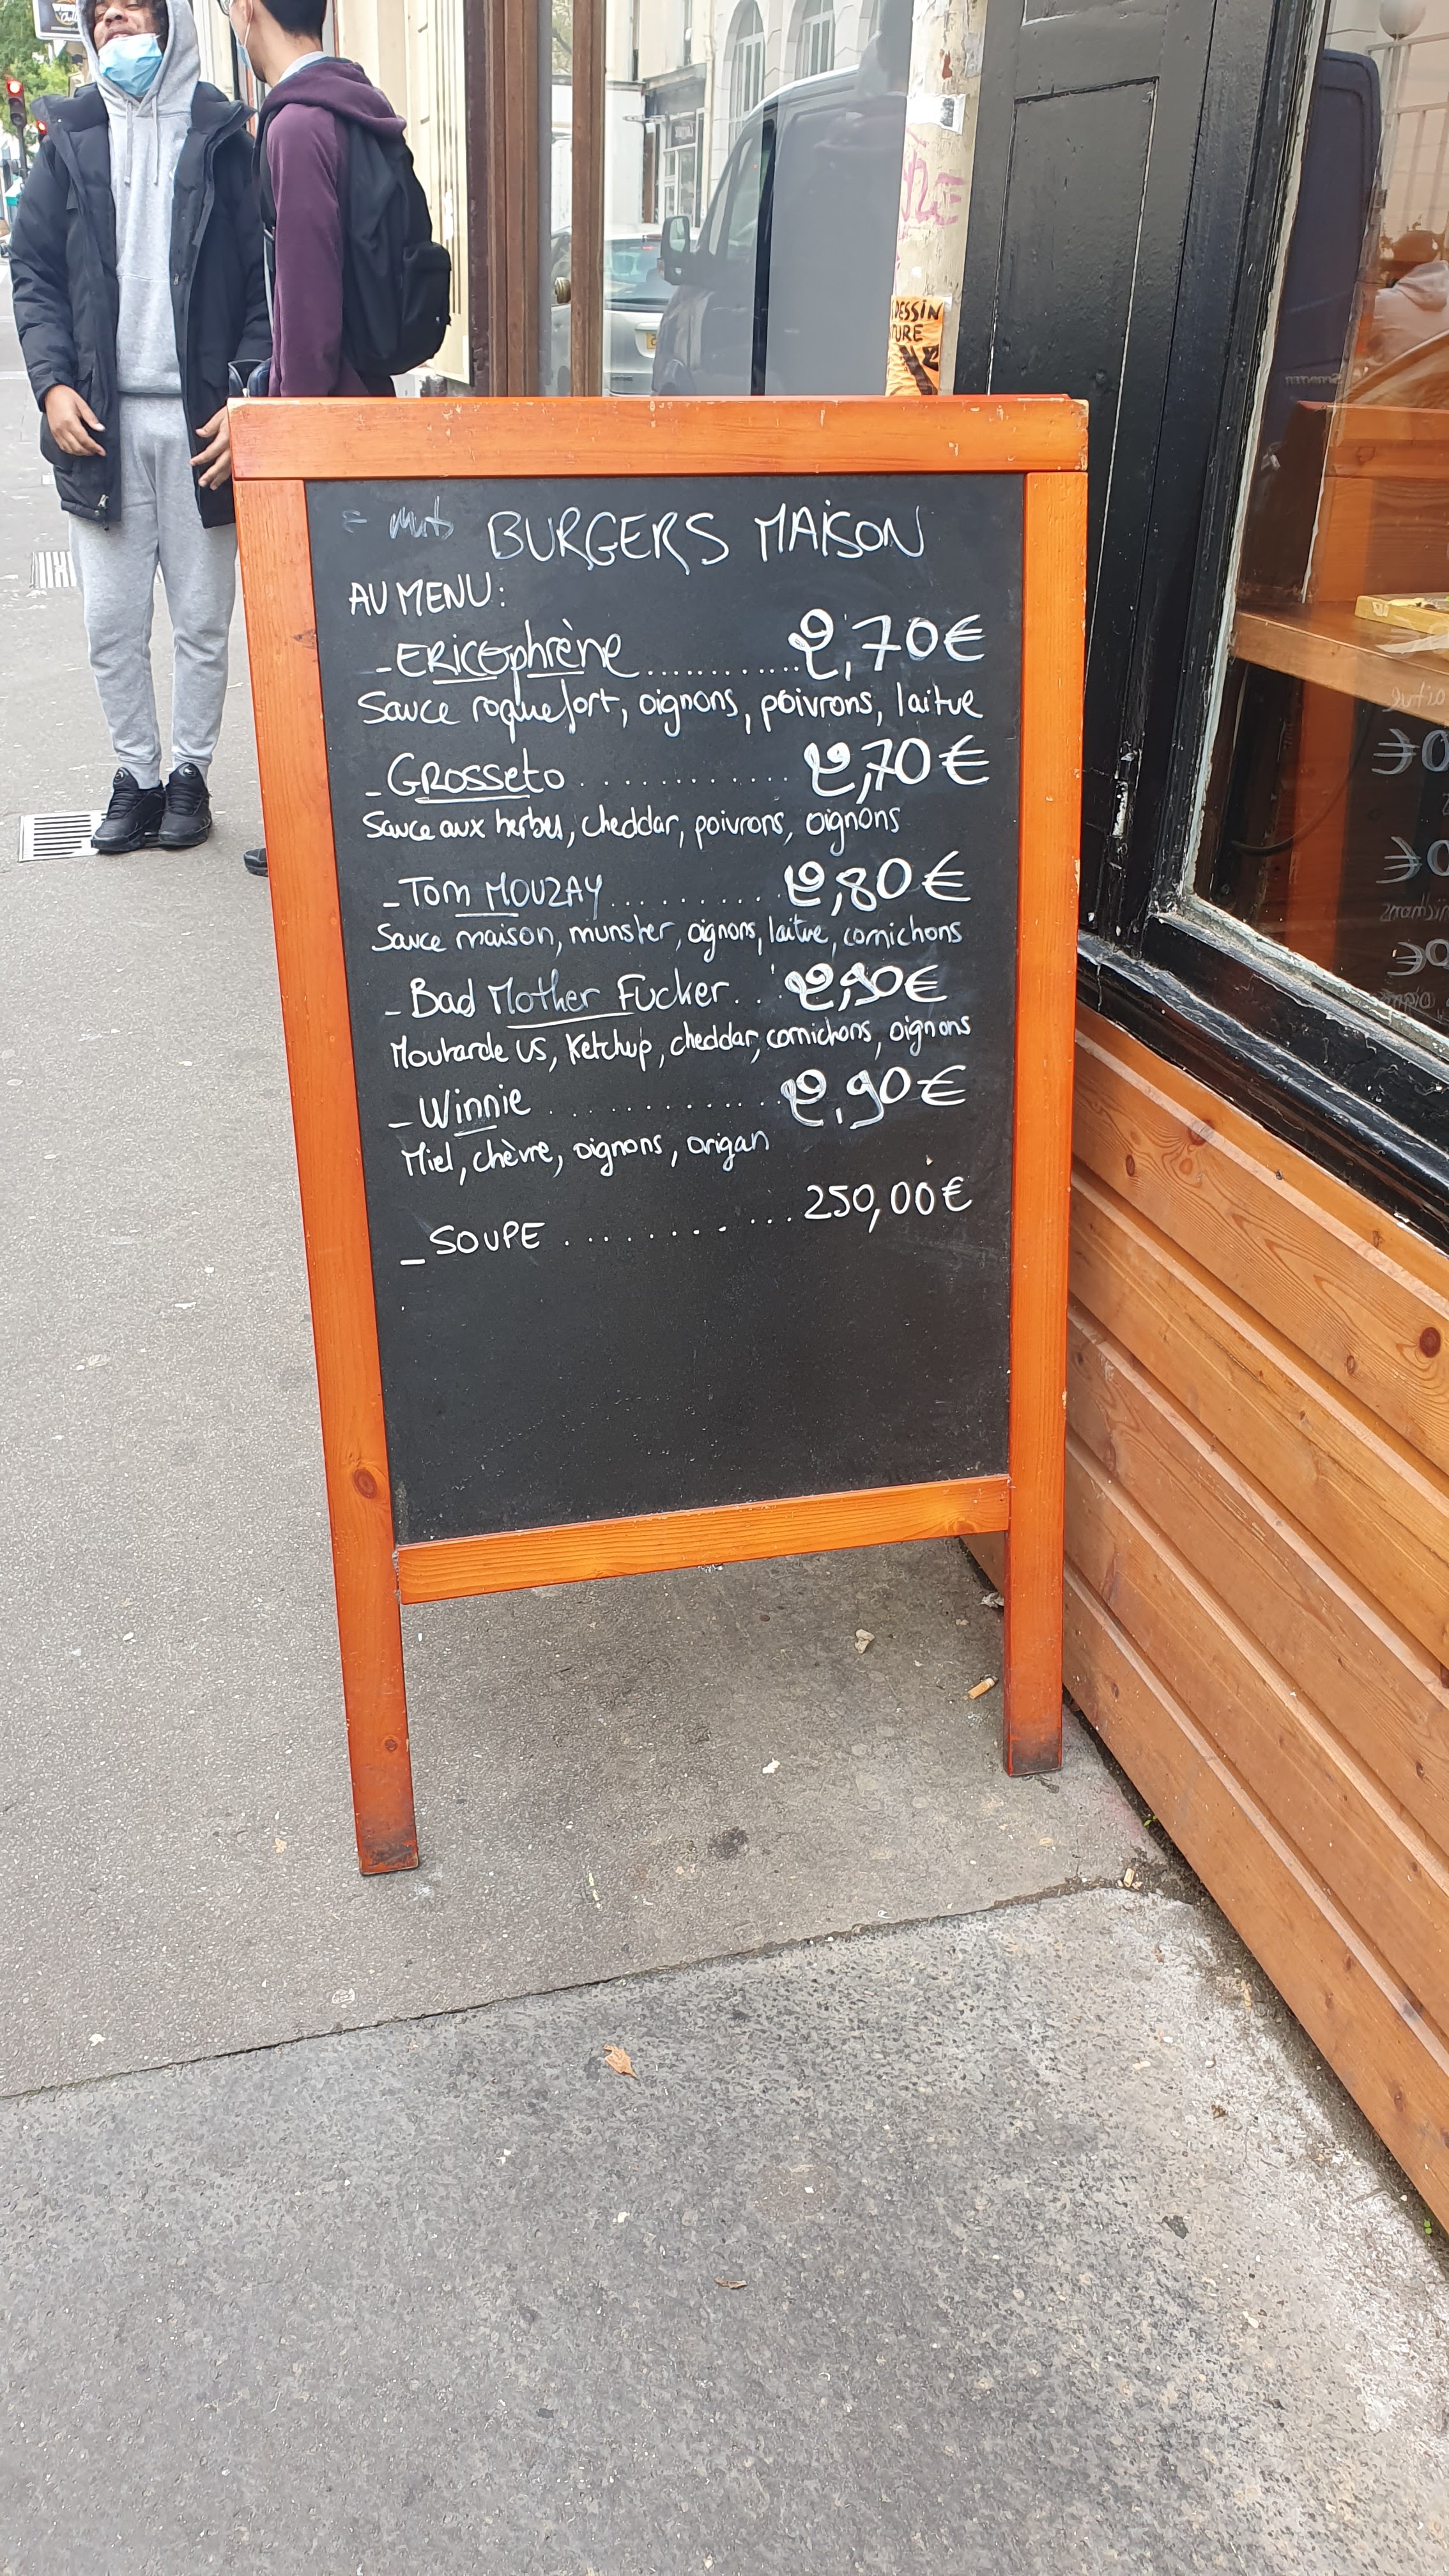 BURGERS MAISON
AU MENU:
_ERICOphrène............2,70€
Sauce roquefort, oignons, poivrons, laitue
_GROSSETO............2,70€
Sauce aux herbes, cheddar, poivrons, oignons
_Tom MOUZAY..........2,80€
Sauce maison, munster, oignons, laitue, cornichons
_Bad Mother Fucker...2,90€
Moutarde US, Ketchup, cheddar, cornichons, oignons
_Winnie.............2,90€
Miel, chèvre, oignons, origan
_SOUPE...........250,00€
DESSIN